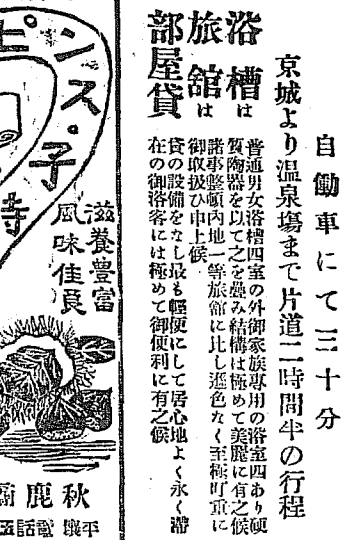 自働車にて三十分
京城より温泉塲まで片道二時間半の行程
浴槽は
普通男女浴槽四室の外御家族專用の浴室四あり硬
質陶器を以て之を疊み結構は極めて美麗に有之候
旅舘は
諸事整頓內地一等旅舘に比し遜色なく至極町重に
御取扱ひ申上候
部屋貸
貸の設備をなし最も輕便にして居心地よく永く滯
在の御浴客には極めて御便利に有之候
ンス・子
ピ
寺
滋養豐富
風味佳良
秋鹿商
平壤電話五